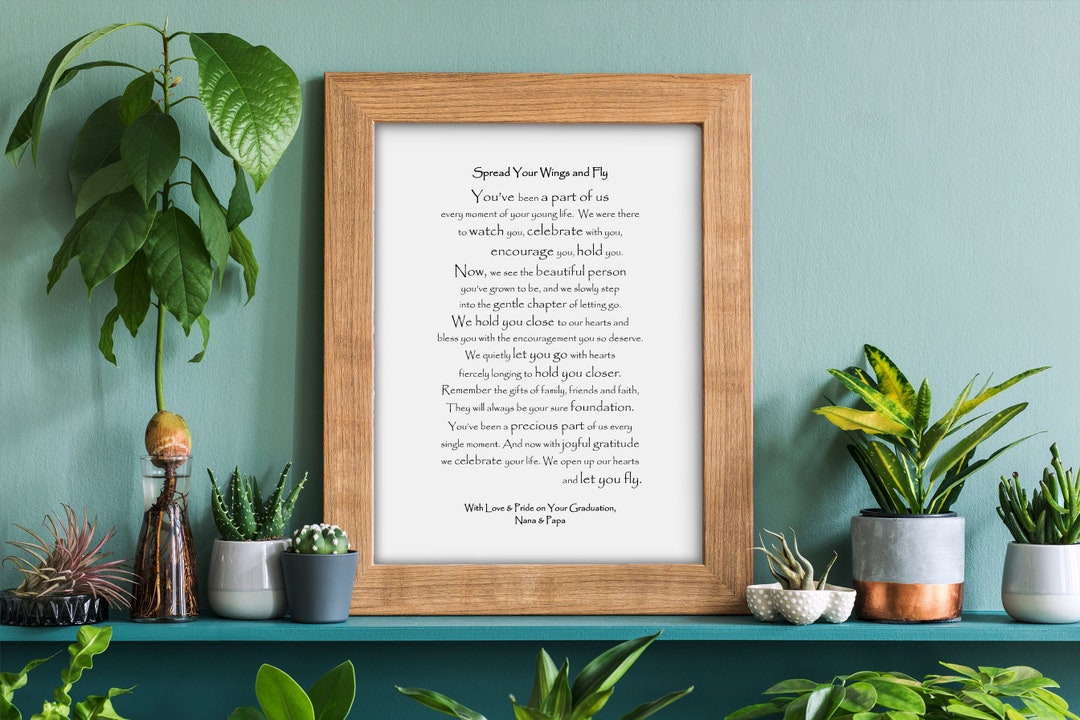 Spread Your Wings and Fly
You've been a part of us
every moment of your young life. We were there
to watch you, celebrate with you,
encourage you, hold you.
Now, we see the beautiful person
you've grown to be, and we slowly step
into the gentle chapter of letting go.
We hold you close to our hearts and
bless you with the encouragement you so deserve.
We quietly let you go with hearts
fiercely longing to hold you closer.
Remember the gifts of family, friends and faith,
They will always be your sure foundation.
You've been a precious part of us every
single moment. And now with joyful gratitude
we celebrate your life. We open up our hearts
and let you fly.
With Love & Pride on Your Graduation,
Nana & Papa